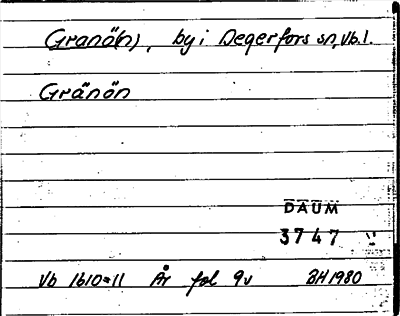 Granö(n), by i Degerfors sn, Vb.l.
Gränön
DAUM
3747
Vb 1610=11 År fol 9v BH 1980